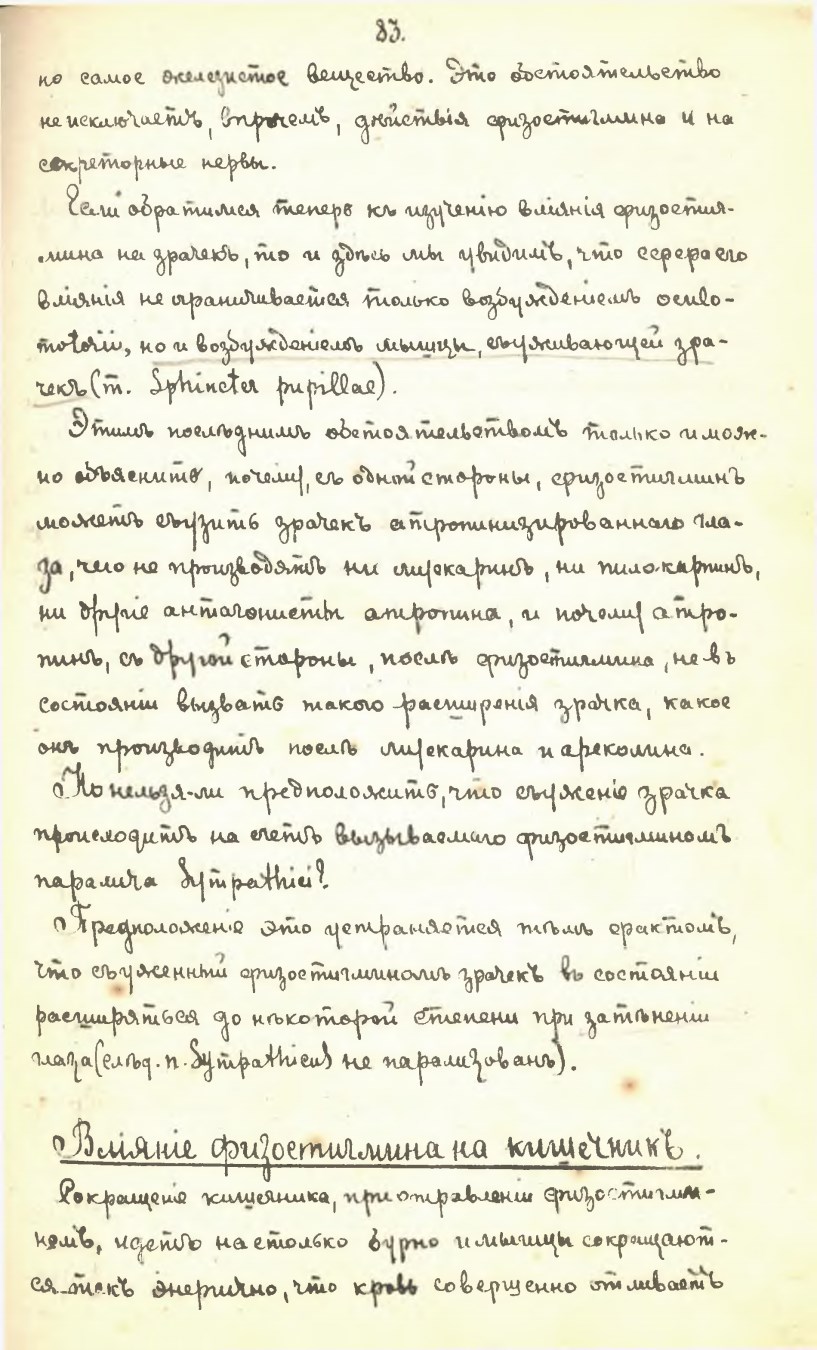 83.
но самое железистое вещество. Это обстоятельство
не исключаетъ, впрочемъ, дѣйствія физостигмина и на
секреторные нервы.
Если обратимся теперь къ изученію вліянія физостиг-
мина на зрачекъ, то и здѣсь мы увидимъ, что сфера его
вліянія не ограничивается только возбужденіемъ oculo-
motorii, но и возбужденіемъ мышцы, съуживающей зра-
чекъ (m. Sphincter pupillae).
Этимъ послѣднимъ обстоятельствомъ только и мож-
но объяснить, почему, съ одной стороны, физостигминъ
можетъ съузить зрачекъ атропинизированнаго гла-
за, чего не производятъ ни мускаринъ, ни пилокарпинъ,
ни другіе антагонисты атропина, и почему атро-
пинъ, съ другой стороны, послѣ физостигмина, не въ
состояніи вызвать такого расширенія зрачка, какое
онъ производитъ послѣ мускарина и ареколина.
Но нельзя-ли предположить, что съуженіе зрачка
происходитъ на счетъ вызываемаго физостигминомъ
паралича Sympathici?
Предположеніе это устраняется тѣмъ фактомъ,
что съуженный физостигминомъ зрачекъ въ состояніи
расширяться до нѣкоторой степени при затѣненіи
глаза (слѣд. n. Sympathicus не парализованъ).
Вліяніе физостигмина на кишечникъ.
Сокращеніе кишечника, при отравленіи физостигми-
номъ, идетъ настолько бурно и мышцы сокращают-
ся такъ энергично, что кровь совершенно отливаетъ